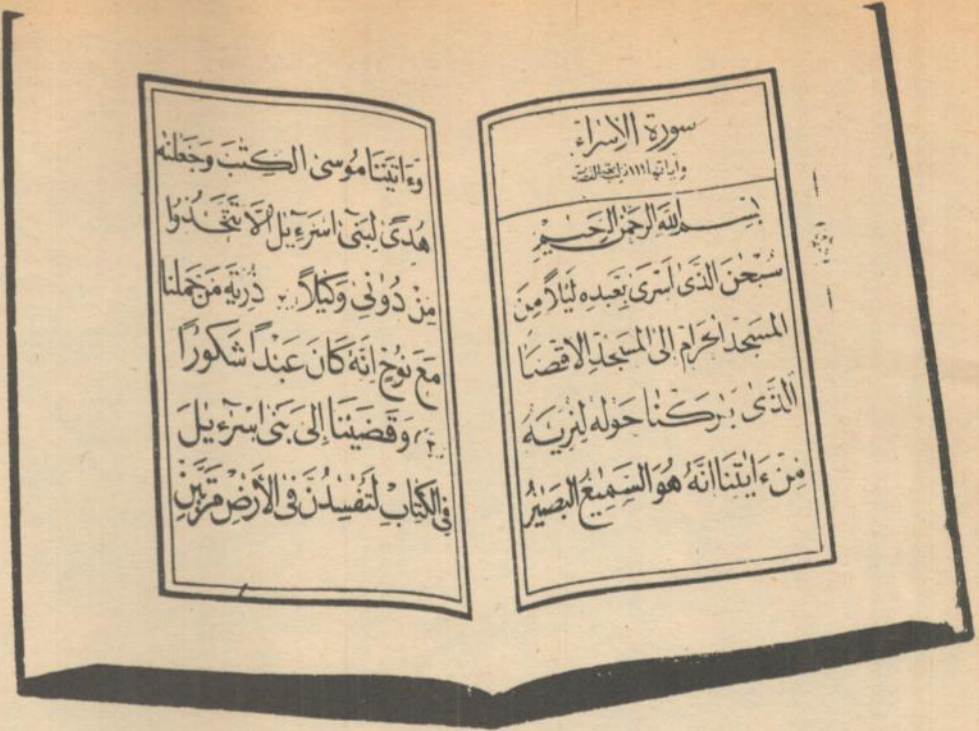 سورة الإسراء
وآياتها ١١١ نزلت بعد القصص
بسم الله الرحمن الرحيم
سُبْحٰنَ الَّذِى أَسْرَى بِعَبْدِهِ لَيْلاً مِنَ
المَسْجِدِ الحَرامِ إلى المَسْجِدِ الاقْصَا
الَّذِى بٰرَكْنا حَوْلَهُ لِنُرِيَهُ
مِنْ ءَايٰتِنَا إنَّهُ هُوَ السَّمِيعُ البَصِيرُ
وَءَاتَيْنَا مُوسى الكِتٰبَ وَجَعَلْنٰهُ
هُدًى لِبَنِى اسْرَٓءِيلَ أَلاَّ تَتَّخِذُوا
مِنْ دُونِى وَكِيلاً ٢ ذُرِّيَّةَ مَنْ حَمَلْنا
مَعَ نُوحٍ إنَّهُ كانَ عَبْداً شَكُوراً
٣ وَقَضَيْنَا إِلى بَنِى إسْرَٓءِيلَ
فِى الكِتَابِ لَتُفْسِدُنَّ فِى الأَرْضِ مَرَّتَيْنِ